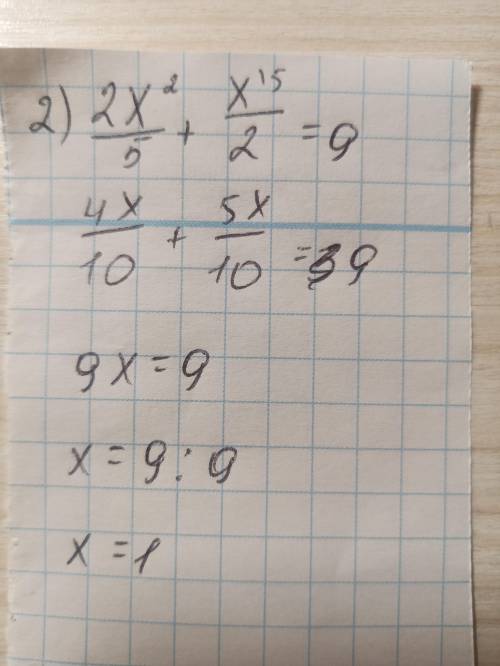 2) 2x²/5 + x¹⁵/2 = 9
4x/10 + 5x/10 = 9
9x = 9
x = 9 : 9
x = 1